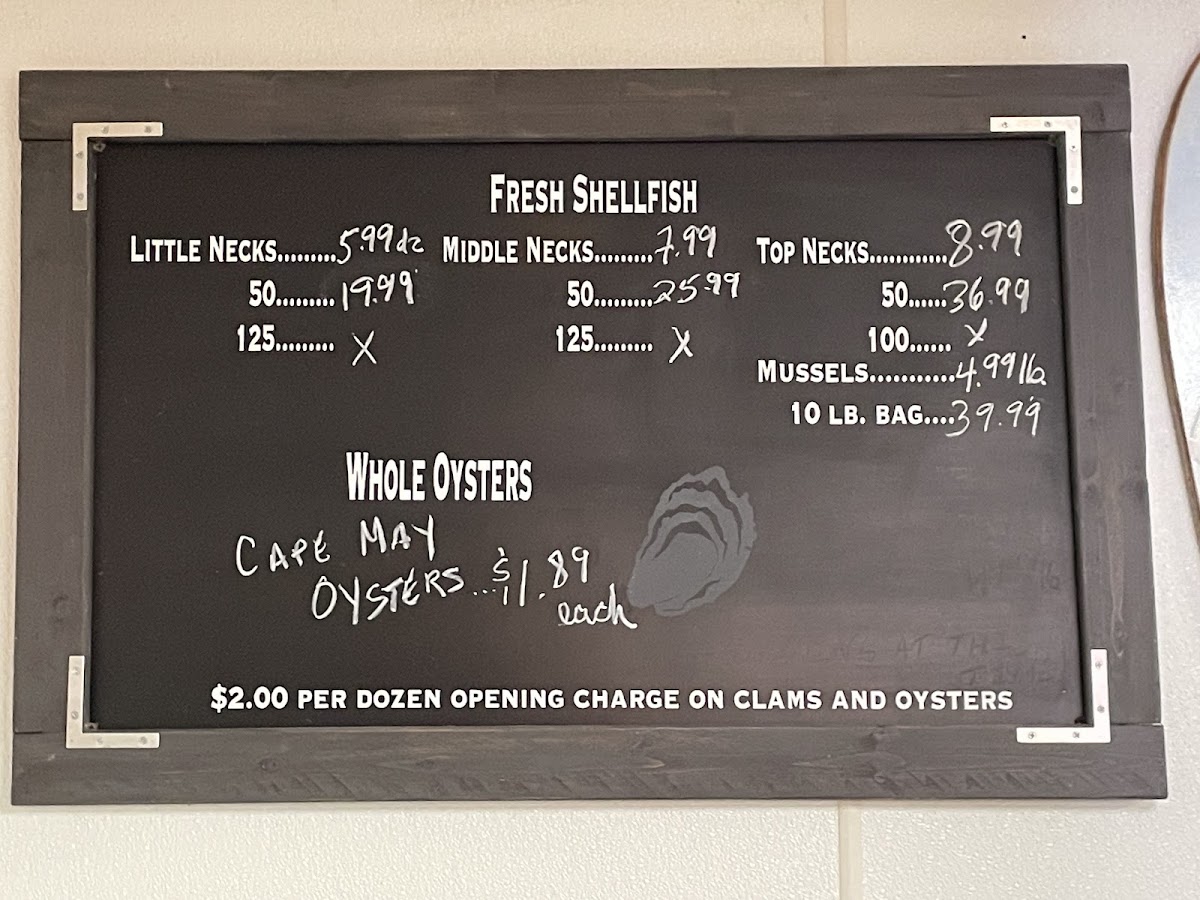 FRESH SHELLFISH
LITTLE NECKS.........5.99 dz
50.........19.99
125......... X
MIDDLE NECKS.........7.99
50.........25.99
125......... X
TOP NECKS............8.99
50......36.99
100...... X
MUSSELS...........4.99 lb
10 LB. BAG....39.99
WHOLE OYSTERS
CAPE MAY
OYSTERS...$1.89
each
$2.00 PER DOZEN OPENING CHARGE ON CLAMS AND OYSTERS